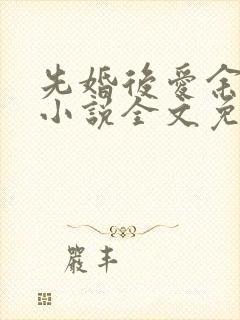 先婚後愛
小說全文免
嚴丰